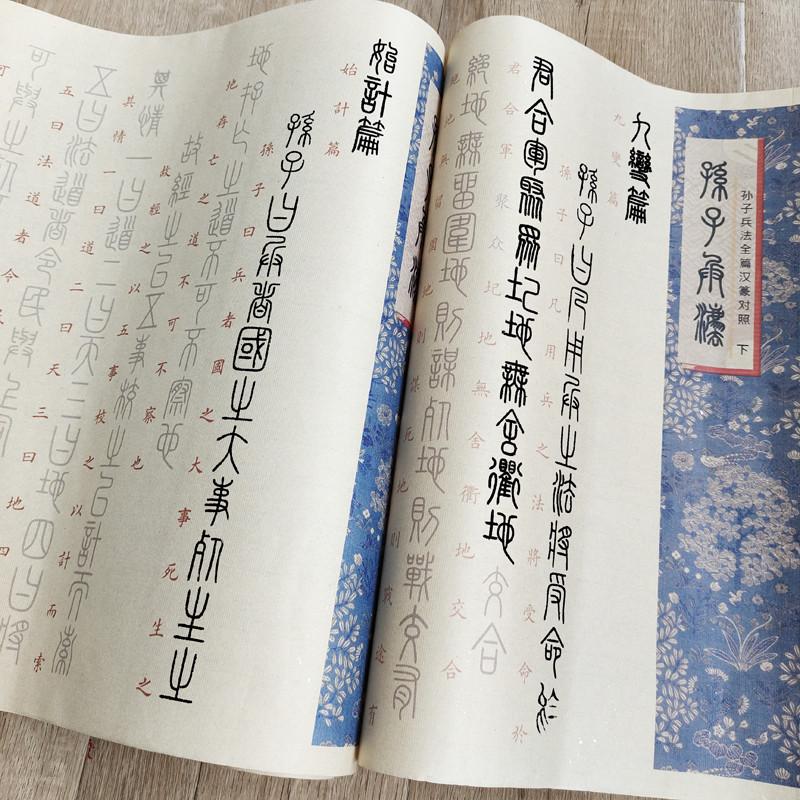 孫子兵法
孙子兵法全篇汉篆对照 下
九變篇
九變篇
孫子曰凡用兵之法將受命於
孫子曰凡用兵之法將受命於
君合軍聚眾圮地無舍衢地交合
君合軍聚众圮地無舍衢地交合
絕地無留圍地則謀死地則戰有
地無留圍地則謀死地則有
始計篇
始計篇
孫子曰兵者國之大事死生之
孫子曰兵者國之大事死生之
地存亡之道不可不察也
地存亡之道不可不察也
故經之以五事校之以計而索
故經之以五事校之以計而索
其情一曰道二曰天三曰地四曰將
其情一曰道二曰天三曰地四
五曰法道者令民與上同
五曰法道者令民
可與之
可